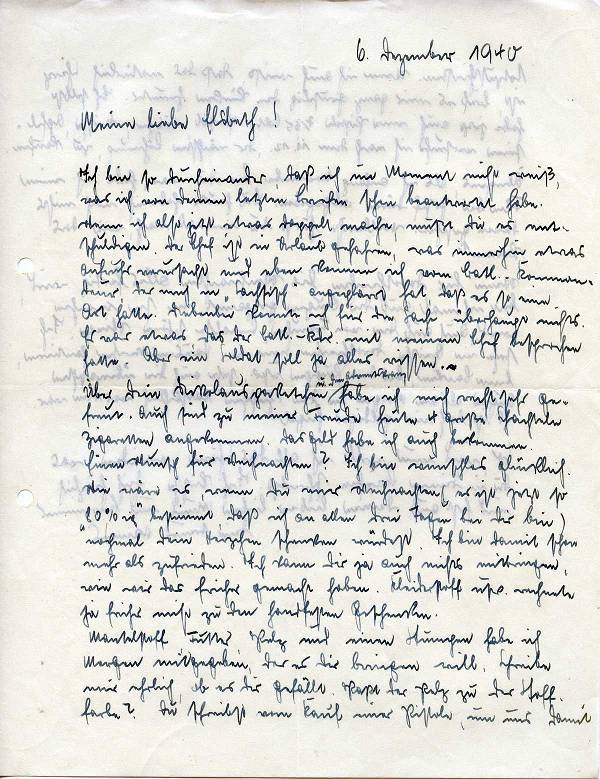 6. Dezember 1940
Meine liebe Elsbeth!
Ich bin so durcheinander, daß ich im Moment nicht weiß,
was ich von Deinen letzten Briefen schon beantwortet habe.
Wenn ich also jetzt etwas doppelt mache, mußt Du es ent-
schuldigen. Der Chef ist in Urlaub gefahren, was immerhin etwas
Aufruhr verursacht und eben komme ich vom Batl. Komman-
deur, der mich angepfiffen hat, daß es so eine
Art hatte. Dabei konnte ich für die Sache überhaupt nichts.
Es war etwas, das der Batl.-Kdr. mit meinem Chef besprochen
hatte. Aber ein Soldat soll ja alles wissen.
u. den Adventskranz
Über Dein Nikolauspaketchen habe ich mich recht sehr ge-
freut. Auch sind zu meiner Freude heute 4 große Schachteln
Zigaretten angekommen. Das Geld habe ich auch bekommen.
Einen Wunsch für Weihnachten? Ich bin wunschlos glücklich.
Wie wäre es, wenn Du mir Weihnachten (es ist jetzt so
80%ig bestimmt, daß ich an allen drei Tagen bei Dir bin)
nochmal Dein Herzchen schenken würdest. Ich bin damit schon
mehr als zufrieden. Ich kann Dir ja auch nichts mitbringen,
wie wir das früher gemacht haben. Kleiderstoff usw. rechnete
ja früher nicht zu den handfesten Geschenken.
Mantelstoff Futter Pelz und einen habe ich
mitgegeben, der es Dir bringen will. Schreibe
mir ehrlich, ob es Dir gefällt. Paßt der Pelz zu der Stoff-
farbe? Du schreibst vom Kauf einer Pistole, um uns damit